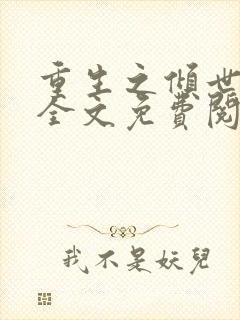 重生之傾世
全文免費閱
我不是妖兒